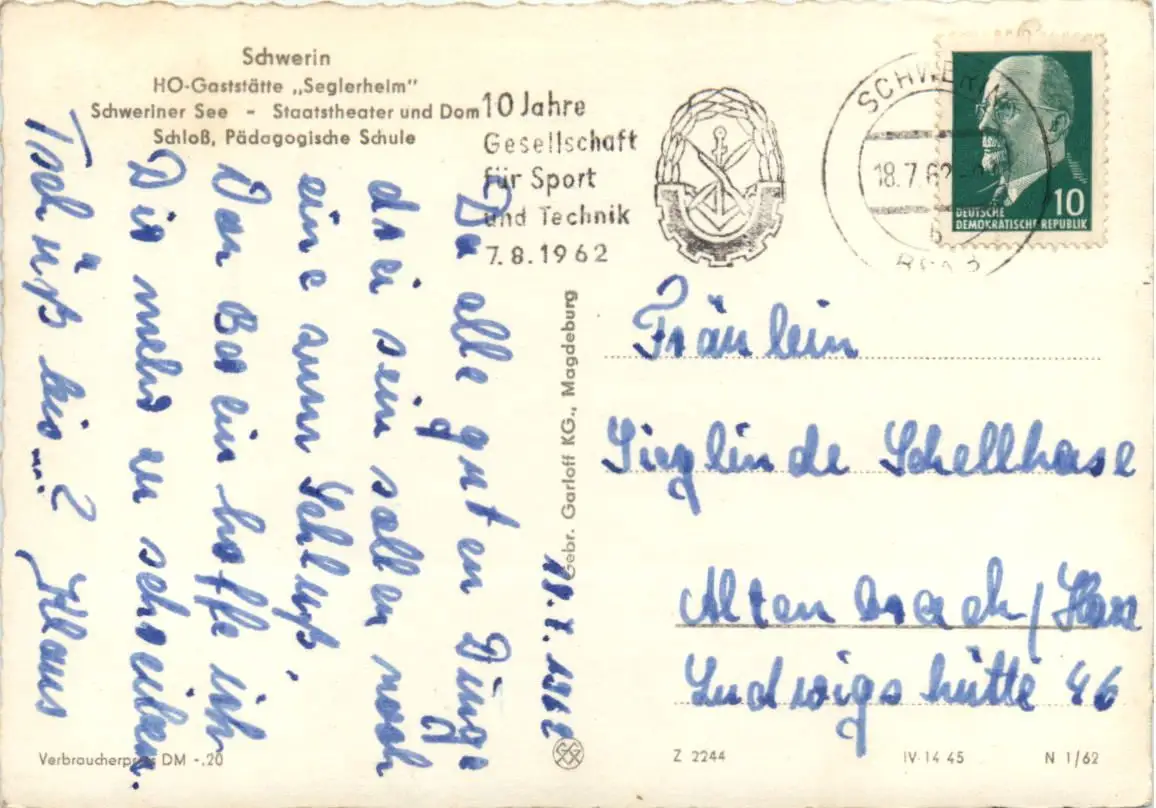 Schwerin
HO-Gaststätte „Seglerheim"
Schweriner See - Staatstheater und Dom
Schloß, Pädagogische Schule
10 Jahre
Gesellschaft
für Sport
und Technik
7.8.1962
SCHWERIN
18.7.62
b
DEUTSCHE
DEMOKRATISCHE REPUBLIK
10
18.7.1962
Da alle guten Dinge
drei sein sollen noch
eine zum Schluß.
Von Berlin hoffe ich
Dir mehr zu schreiben.
Tschüß bis ...? Klaus
Gebr. Garloff KG., Magdeburg
Fräulein
Sieglinde Schellhase
Altenbrach/Harz
Ludwigshütte 46
Verbraucherpreis DM -.20
Z 2244
IV-14-45
N 1/62